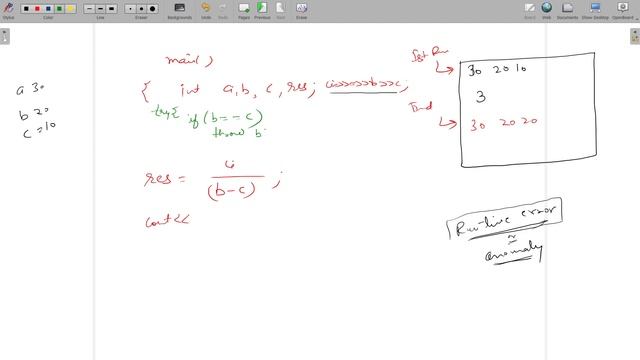 Stylus
Color
Line
Eraser
Backgrounds
Undo
Redo
Page
Previous
Next
Erase
Board
Documents
Show Desktop
OpenBoard
main()
{ int a, b, c, res; cin>>a>>b>>c;
try{ if (b == c)
throw b;
res = a
(b-c) ;
cout<<
a 30
b 20
c = 10
Ist Run
30 20 10
3
IInd
30 20 20
Run-time error
anomaly